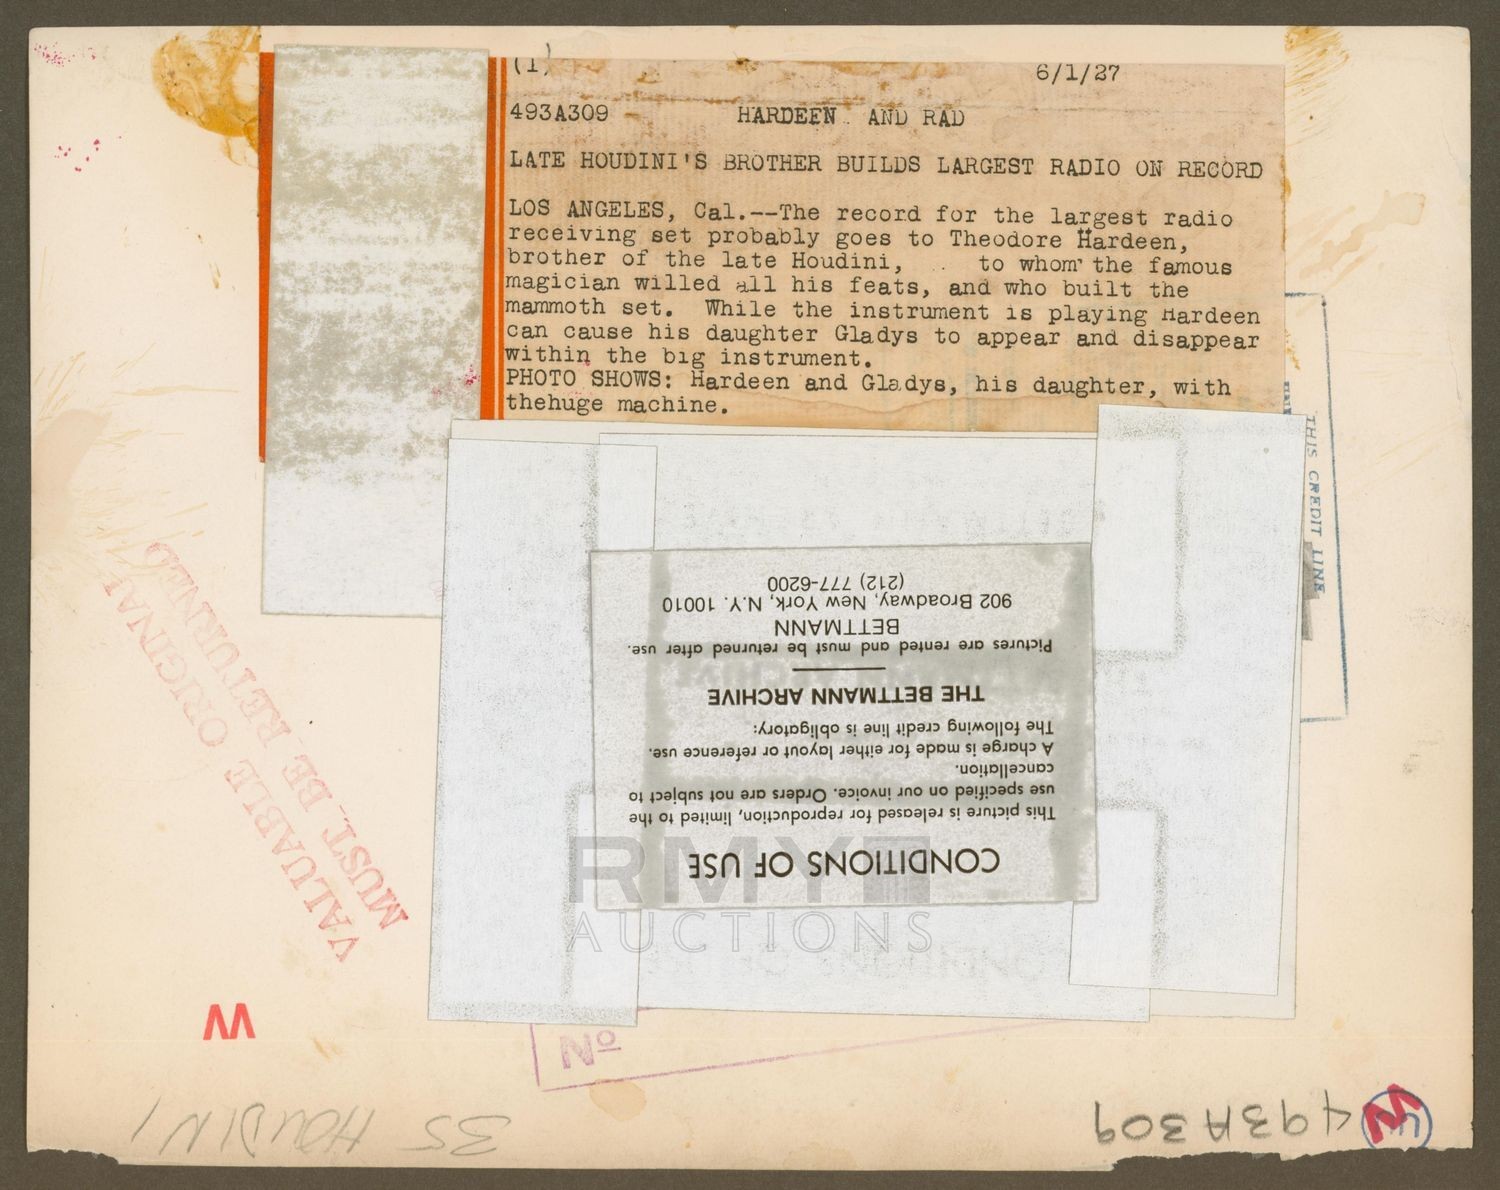 (1) 6/1/27
493A309 HARDEEN AND RAD
LATE HOUDINI'S BROTHER BUILDS LARGEST RADIO ON RECORD
LOS ANGELES, Cal.--The record for the largest radio
receiving set probably goes to Theodore Hardeen,
brother of the late Houdini, to whom the famous
magician willed all his feats, and who built the
mammoth set. While the instrument is playing Hardeen
can cause his daughter Gladys to appear and disappear
within the big instrument.
PHOTO SHOWS: Hardeen and Gladys, his daughter, with
thehuge machine.
THIS CREDIT LINE
CONDITIONS OF USE
This picture is released for reproduction, limited to the
use specified on our invoice. Orders are not subject to
cancellation.
A charge is made for either layout or reference use.
The following credit line is obligatory:
THE BETTMANN ARCHIVE
Pictures are rented and must be returned after use.
BETTMANN
902 Broadway, New York, N.Y. 10010
(212) 777-6200
VALUABLE ORIGINAL
MUST BE RETURNED
RMY
AUCTIONS
W
Nº
35 HOUDINI
493A309